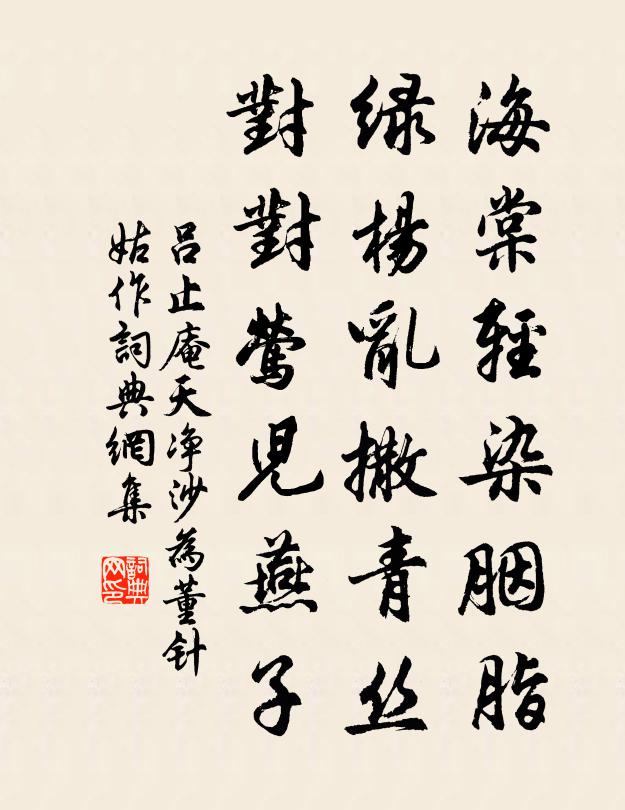 海棠輕染胭脂
緑楊亂撒青丝
對對鶯兒燕子
吕止庵天净沙為董针
姑作詞典網集
詞典网印